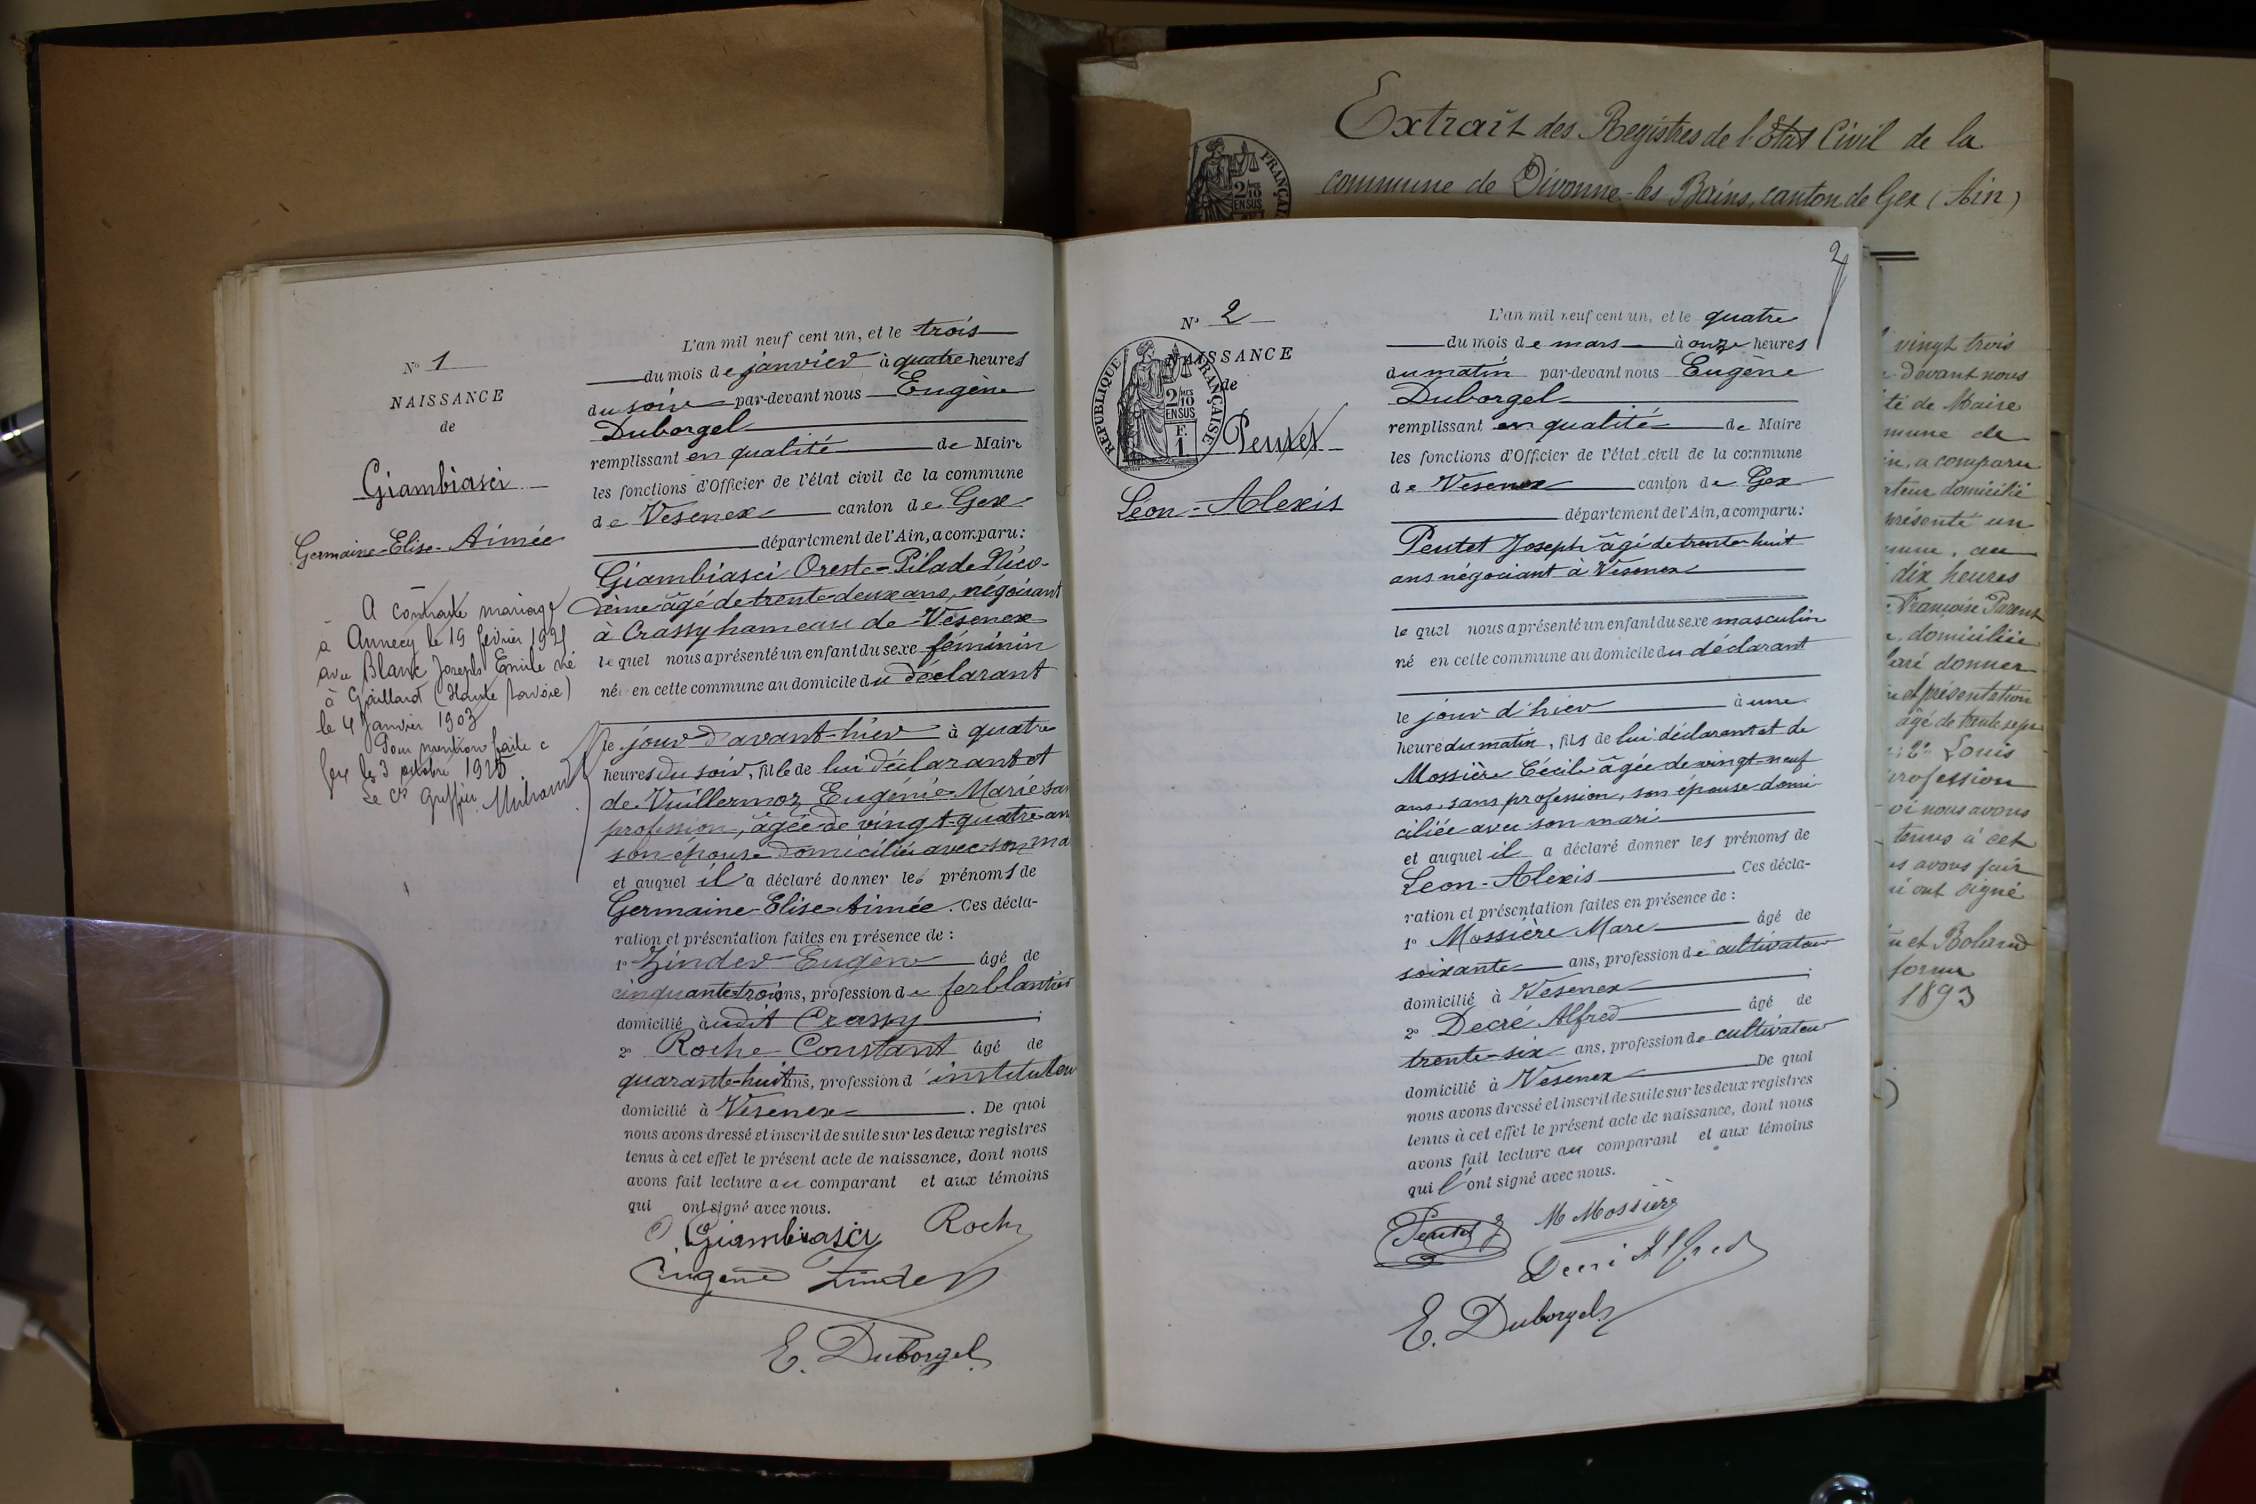 Extrait des Registres de l'Etat Civil de la
commune de Divonne-les-Bains, canton de Gex (Ain)
FRANÇAI
2/10
EN SUS
N° 1
NAISSANCE
de
Giambiasci
Germaine-Elise-Aimée
A contracté mariage
à Annecy le 19 février 1921
avec Blanc Joseph Emile né
à Gaillard (Haute Savoie)
le 4 janvier 1903
Pour mention faite
Gex le 3 octobre 1925
Le Cs Greffier
L'an mil neuf cent un, et le trois
du mois de janvier à quatre heures
du soir par-devant nous Eugène
Duborgel
remplissant en qualité de Maire
les fonctions d'Officier de l'état civil de la commune
de Vesenex canton de Gex
département de l'Ain, a comparu:
Giambiasci Oreste-Pilade Nico-
dème âgé de trente-deux ans, négociant
à Crassy hameau de Vesenex
lequel nous a présenté un enfant du sexe féminin
né en cette commune au domicile du déclarant
le jour d'avant-hier à quatre
heures du soir, fille de lui déclarant et
de Vuillermoz Eugénie-Marie san
profession, âgée de vingt-quatre an
son épouse domiciliée avec son ma
et auquel il a déclaré donner les prénoms de
Germaine-Elise-Aimée. Ces décla-
ration et présentation faites en présence de:
1° Zinder Eugène âgé de
cinquante-trois ans, profession de ferblantier
domicilié audit Crassy;
2° Roche Constant âgé de
quarante-huit ans, profession d'instituteur
domicilié à Vesenex. De quoi
nous avons dressé et inscrit de suite sur les deux registres
tenus à cet effet le présent acte de naissance, dont nous
avons fait lecture au comparant et aux témoins
qui ont signé avec nous.
O. Giambiasci Roche
Eugène Zinder
E. Duborgel
2
N° 2
NAISSANCE
de
RÉPUBLIQUE FRANÇAISE
2/10
EN SUS
F.
1
Pentet
Léon-Alexis
L'an mil neuf cent un, et le quatre
du mois de mars à onze heures
du matin par-devant nous Eugène
Duborgel
remplissant en qualité de Maire
les fonctions d'Officier de l'état civil de la commune
de Vesenex canton de Gex
département de l'Ain, a comparu:
Pentet Joseph âgé de trente-huit
ans négociant à Vesenex
lequel nous a présenté un enfant du sexe masculin
né en cette commune au domicile du déclarant
le jour d'hier à une
heure du matin, fils de lui déclarant et de
Mossière Cécile âgée de vingt-neuf
ans, sans profession, son épouse domi
ciliée avec son mari
et auquel il a déclaré donner les prénoms de
Léon-Alexis. Ces décla-
ration et présentation faites en présence de:
1° Mossière Marc âgé de
soixante ans, profession de cultivateur
domicilié à Vesenex;
2° Decré Alfred âgé de
trente-six ans, profession de cultivateur
domicilié à Vesenex De quoi
nous avons dressé et inscrit de suite sur les deux registres
tenus à cet effet le présent acte de naissance, dont nous
avons fait lecture au comparant et aux témoins
qui l'ont signé avec nous.
Pentet J M Mossière
Decré Alfred
E. Duborgel
vingt trois
devant nous
té de Maire
mune de
in, a comparu
ateur domicilié
présenté un
mune, au
dix heures
Françoise Parent
domiciliée
laré donner
et présentation
âgé de trente sept
2° Louis
profession
oi nous avons
tenus à cet
es avons fait
ui ont signé
et Roland
forme
1893